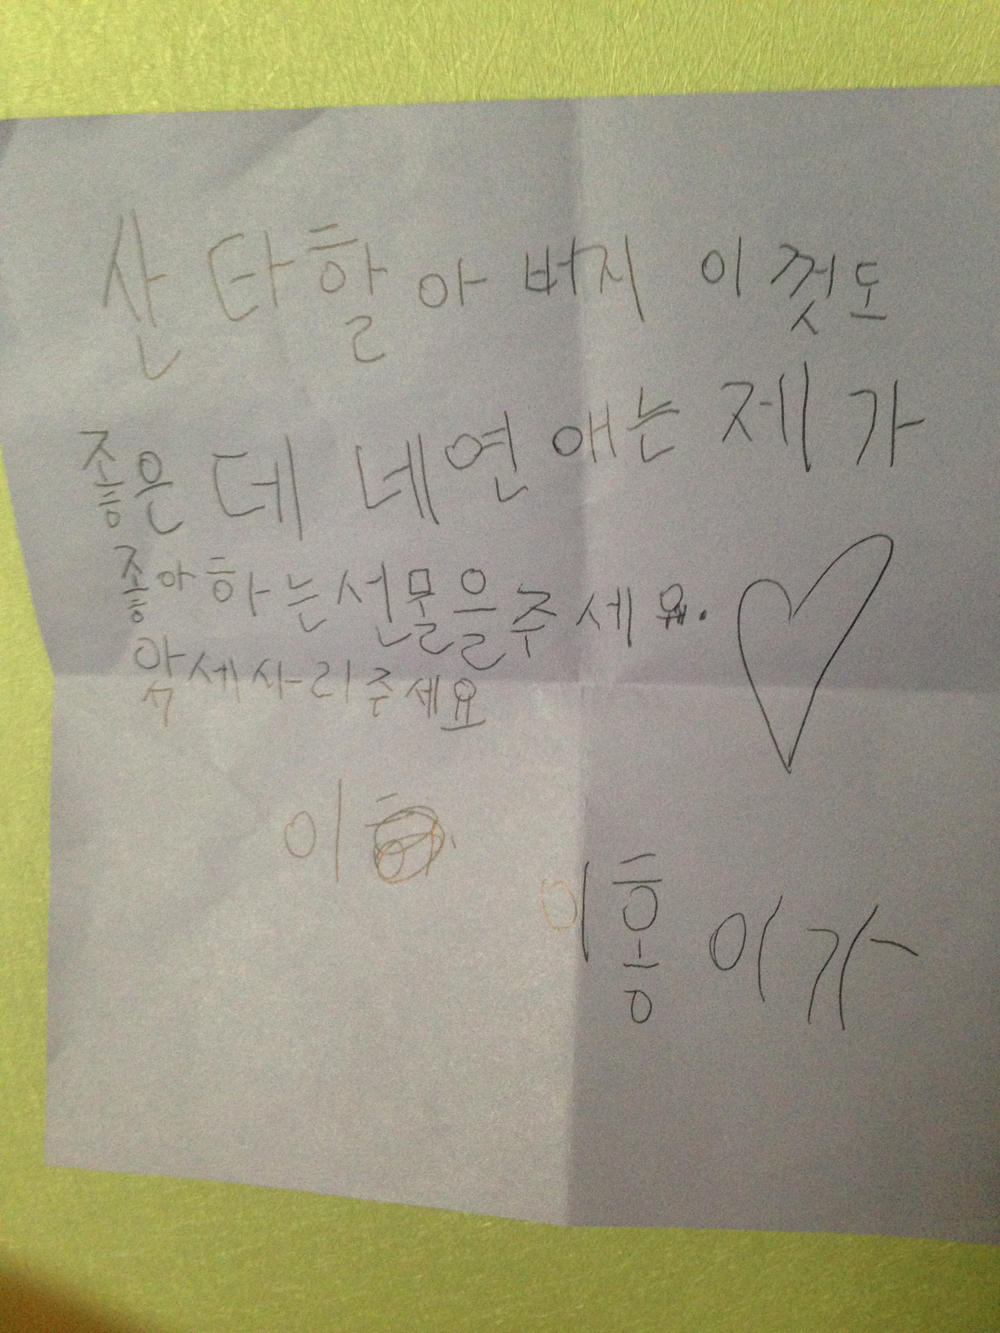 산타할아버지 이껏도
좋은데 네연애는 제가
좋아하는선물을주세요.
악세사리주세요
이
이홍이가